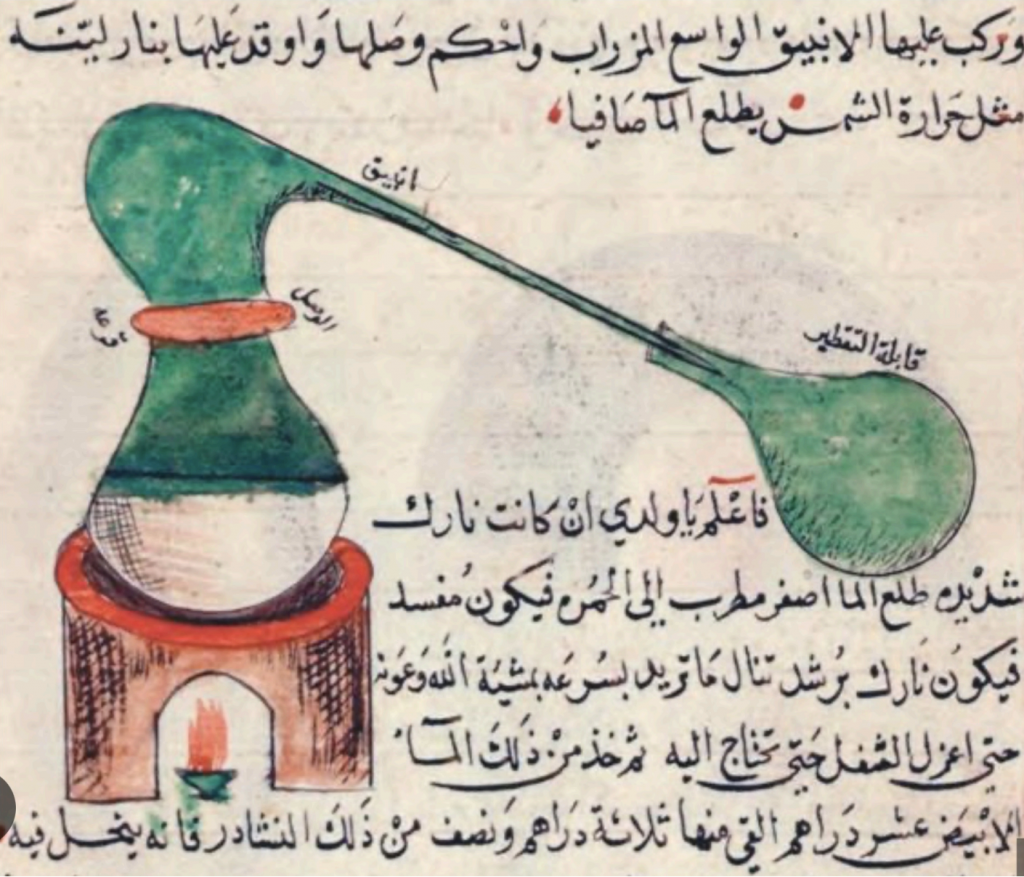 وركب عليها الانبيق الواسع المزراب واحكم وصلها واوقد عليها بنار لينة
مثل حرارة الشمس يطلع الما صافيا
انبيق
الوصل
قرعة
قابلة التقطير
فاعلم يا ولدي ان كانت نارك
شديده طلع الما اصفر مطرب الى الحمره فيكون مفسد
فيكون نارك برشد تنال ما تريد بسرعه بمشية الله وعونه
حتى اعزل الثفل حتى تحتاج اليه ثم خذ من ذلك الماء
الابيض عشر دراهم القي منها ثلاثة دراهم ونصف من ذلك النشادر فانه ينحل فيه